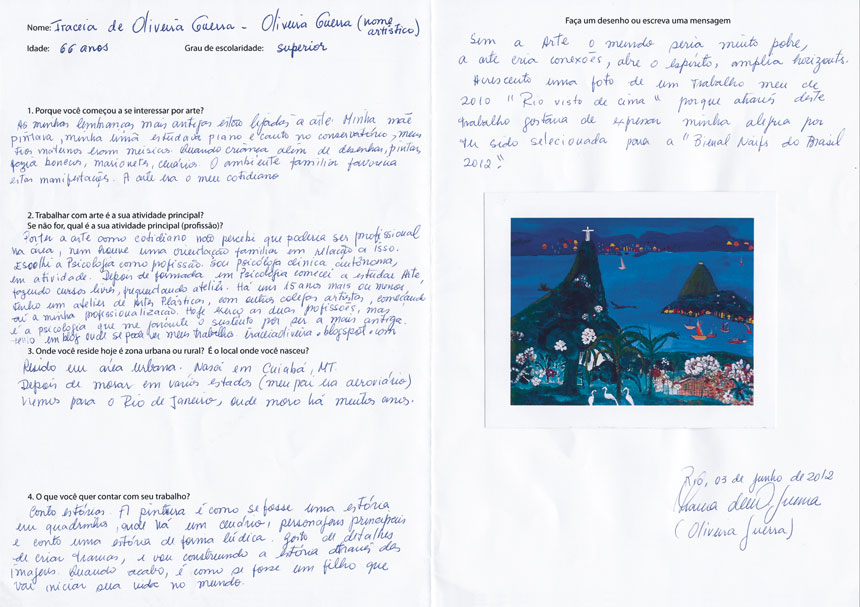 Nome: Iraceia de Oliveira Guerra - Oliveira Guerra (nome
artístico)
Idade: 66 anos Grau de escolaridade: superior
1. Porque você começou a se interessar por arte?
As minhas lembranças mais antigas estão ligadas a arte. Minha mãe
pintava, minha irmã estudava piano e canto no conservatório, meus
tios maternos eram músicos. Quando criança além de desenhar, pintar,
fazia bonecos, marionetes, cenários. O ambiente familiar favorecia
estas manifestações. A arte era o meu cotidiano
2. Trabalhar com arte é a sua atividade principal?
Se não for, qual é a sua atividade principal (profissão)?
Por ter a arte como cotidiano não percebi que poderia ser profissional
na área, nem houve uma orientação familiar em relação a isso.
Escolhi a Psicologia como profissão. Sou psicóloga clínica autônoma,
em atividade. Depois de formada em Psicologia comecei a estudar Arte,
fazendo cursos livres, frequentando ateliês. Há uns 15 anos mais ou menos,
tenho um atelier de Artes Plásticas, com outros colegas artistas, começando
aí a minha profissionalização. Hoje exerço as duas profissões, mas
é a psicologia que me permite o sustento por ser a mais antiga.
Tenho um blog onde se pode ver meus trabalhos. iraceiaoliveira.blogspot.com
3. Onde você reside hoje é zona urbana ou rural? É o local onde você nasceu?
Resido em área urbana. Nasci em Cuiabá, MT.
Depois de morar em vários estados (meu pai era aeroviário)
viemos para o Rio de Janeiro, onde moro há muitos anos.
4. O que você quer contar com seu trabalho?
Conto estórias. A pintura é como se fosse uma estória
em quadrinhos, onde há um cenário, personagens principais
e conto uma estória de forma lúdica. Gosto de detalhes
de criar tramas, e vou construindo a estória através das
imagens. Quando acabo, é como se fosse um filho que
vai iniciar sua vida no mundo.
Faça um desenho ou escreva uma mensagem
Sem a Arte o mundo seria muito pobre,
a arte cria conexões, abre o espírito, amplia horizonts.
Acrescento uma foto de um trabalho meu de
2010 "Rio visto de cima" porque através deste
trabalho gostaria de expressar minha alegria por
ter sido selecionada para a "Bienal Naïfs do Brasil
2012".
Rio, 03 de junho de 2012
(Oliveira Guerra)